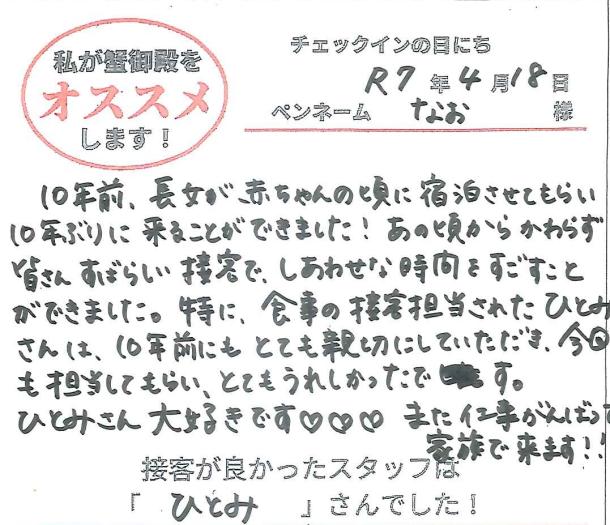 私が蟹御殿を
オススメ
します！
チェックインの日にち
R7年4月18日
ペンネーム なお 様
10年前、長女が赤ちゃんの頃に宿泊させてもらい
10年ぶりに来ることができました！あの頃からかわらず
皆さんすばらしい接客で、しあわせな時間をすごすこと
ができました。特に、食事の接客担当されたひとみ
さんは、10年前にもとても親切にしていただき、今回
も担当してもらい、とてもうれしかったです。
ひとみさん大好きです♡♡♡ また仕事がんばって
家族で来ます！！
接客が良かったスタッフは
「 ひとみ 」さんでした！